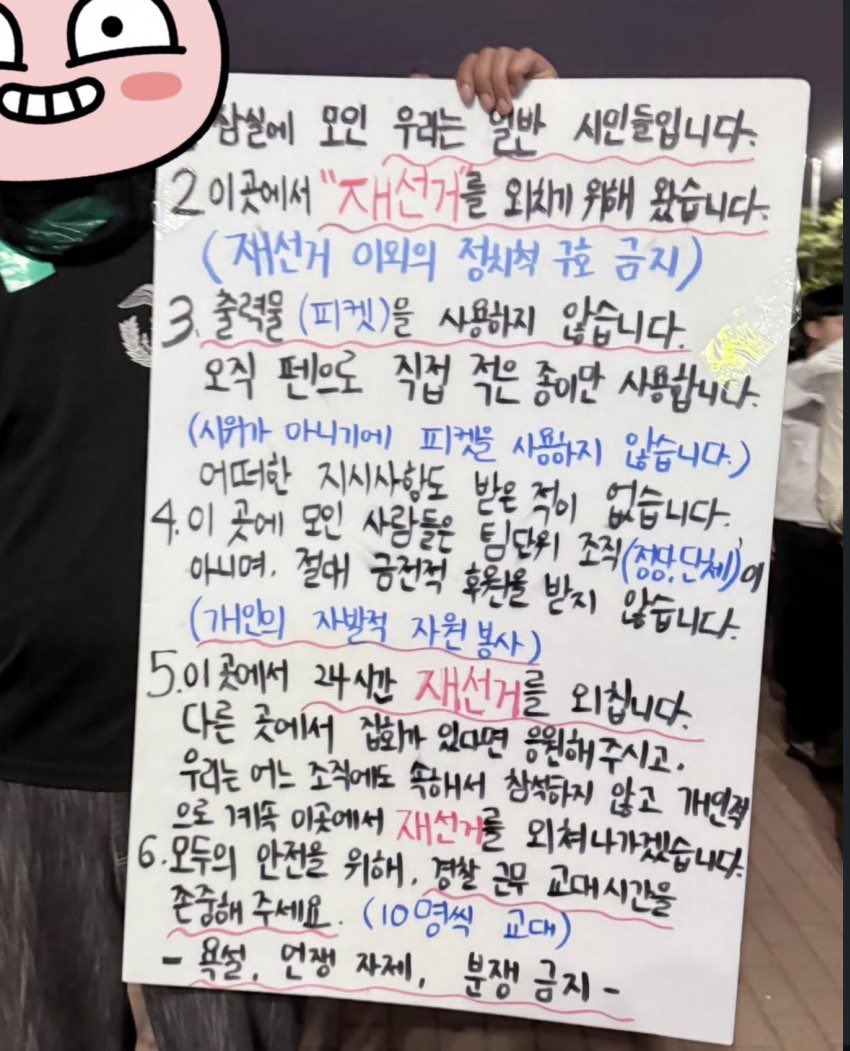 잠실에 모인 우리는 일반 시민들입니다.
2 이곳에서 "재선거"를 외치기 위해 왔습니다.
(재선거 이외의 정치적 구호 금지)
3. 출력물(피켓)을 사용하지 않습니다.
오직 펜으로 직접 적은 종이만 사용합니다.
(시위가 아니기에 피켓을 사용하지 않습니다.)
어떠한 지시사항도 받은 적이 없습니다.
4. 이 곳에 모인 사람들은 팀단위 조직(정당, 단체)이
아니며, 절대 금전적 후원을 받지 않습니다.
(개인의 자발적 자원봉사)
5. 이곳에서 24시간 재선거를 외칩니다.
다른 곳에서 집회가 있다면 응원해주시고,
우리는 어느 조직에도 속해서 참석하지 않고 개인적
으로 계속 이곳에서 재선거를 외쳐나가겠습니다.
6. 모두의 안전을 위해, 경찰 근무 교대시간을
존중해 주세요. (10명씩 교대)
- 욕설, 언쟁 자제, 분쟁 금지 -